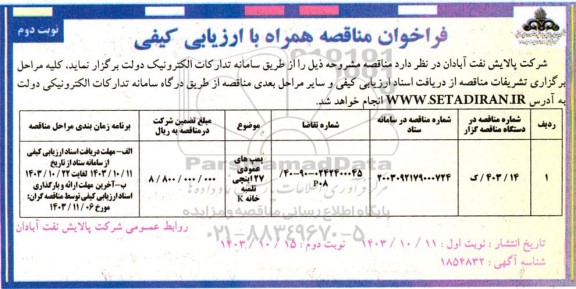 نوبت دوم
فراخوان مناقصه همراه با ارزیابی کیفی
شرکت پالایش نفت آبادان در نظر دارد مناقصه مشروحه ذیل را از طریق سامانه تدارکات الکترونیک دولت برگزار نماید. کلیه مراحل
برگزاری تشریفات مناقصه از دریافت اسناد ارزیابی کیفی و سایر مراحل بعدی مناقصه از طریق درگاه سامانه تدارکات الکترونیکی دولت
به آدرس WWW.SETADIRAN.IR انجام خواهد شد.
ردیف
شماره مناقصه در دستگاه مناقصه گزار
شماره مناقصه در سامانه ستاد
شماره تقاضا
موضوع
مبلغ تضمین شرکت درمناقصه به ریال
برنامه زمان بندی مراحل مناقصه
۱
۱۴ / ۴۰۳ / ک
۲۰۰۳۰۹۲۱۷۹۰۰۰۷۲۴
۴۰۰-۹۰-۰۲۴۲۴۰۰۴۵/
P۰۸
پمپ های
عمودی
۲۷ اینچی
تلمبه
خانه K
۸ / ۸۰۰ / ۰۰۰ / ۰۰۰
الف- مهلت دریافت اسناد ارزیابی کیفی
از سامانه ستاد از تاریخ
۱۱ / ۱۰ / ۱۴۰۳ لغایت ۲۲ / ۱۰ / ۱۴۰۳
ب- آخرین مهلت ارائه و بارگذاری
اسناد ارزیابی کیفی توسط مناقصه گران:
مورخ ۰۶ / ۱۱ / ۱۴۰۳
ParsNamadData
پایگاه اطلاع رسانی مناقصه و مزایده
۰۲۱-۸۸۳۴۹۶۷۰-۵
روابط عمومی شرکت پالایش نفت آبادان
تاریخ انتشار : نوبت اول : ۱۱ / ۱۰ / ۱۴۰۳ نوبت دوم : ۱۵ / ۱۰ / ۱۴۰۳
شناسه آگهی : ۱۸۵۴۸۳۲